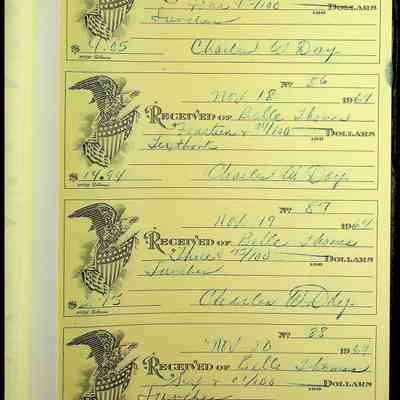 Four & 05/100 AND DOLLARS
Lunches
$ 4.05 Charles W. Day
No 86
Nov 18 1964
RECEIVED OF Belle Thomas
Fourteen & 94/100 AND DOLLARS
Textbook
$ 14.94 Charles W. Day
No 87
Nov 19 1964
RECEIVED OF Belle Thomas
Three & 75/100 AND DOLLARS
Lunches
$ Charles W. Day
No 88
Nov 20 1964
RECEIVED OF Belle Thomas
Six & /100 AND DOLLARS
Lunches